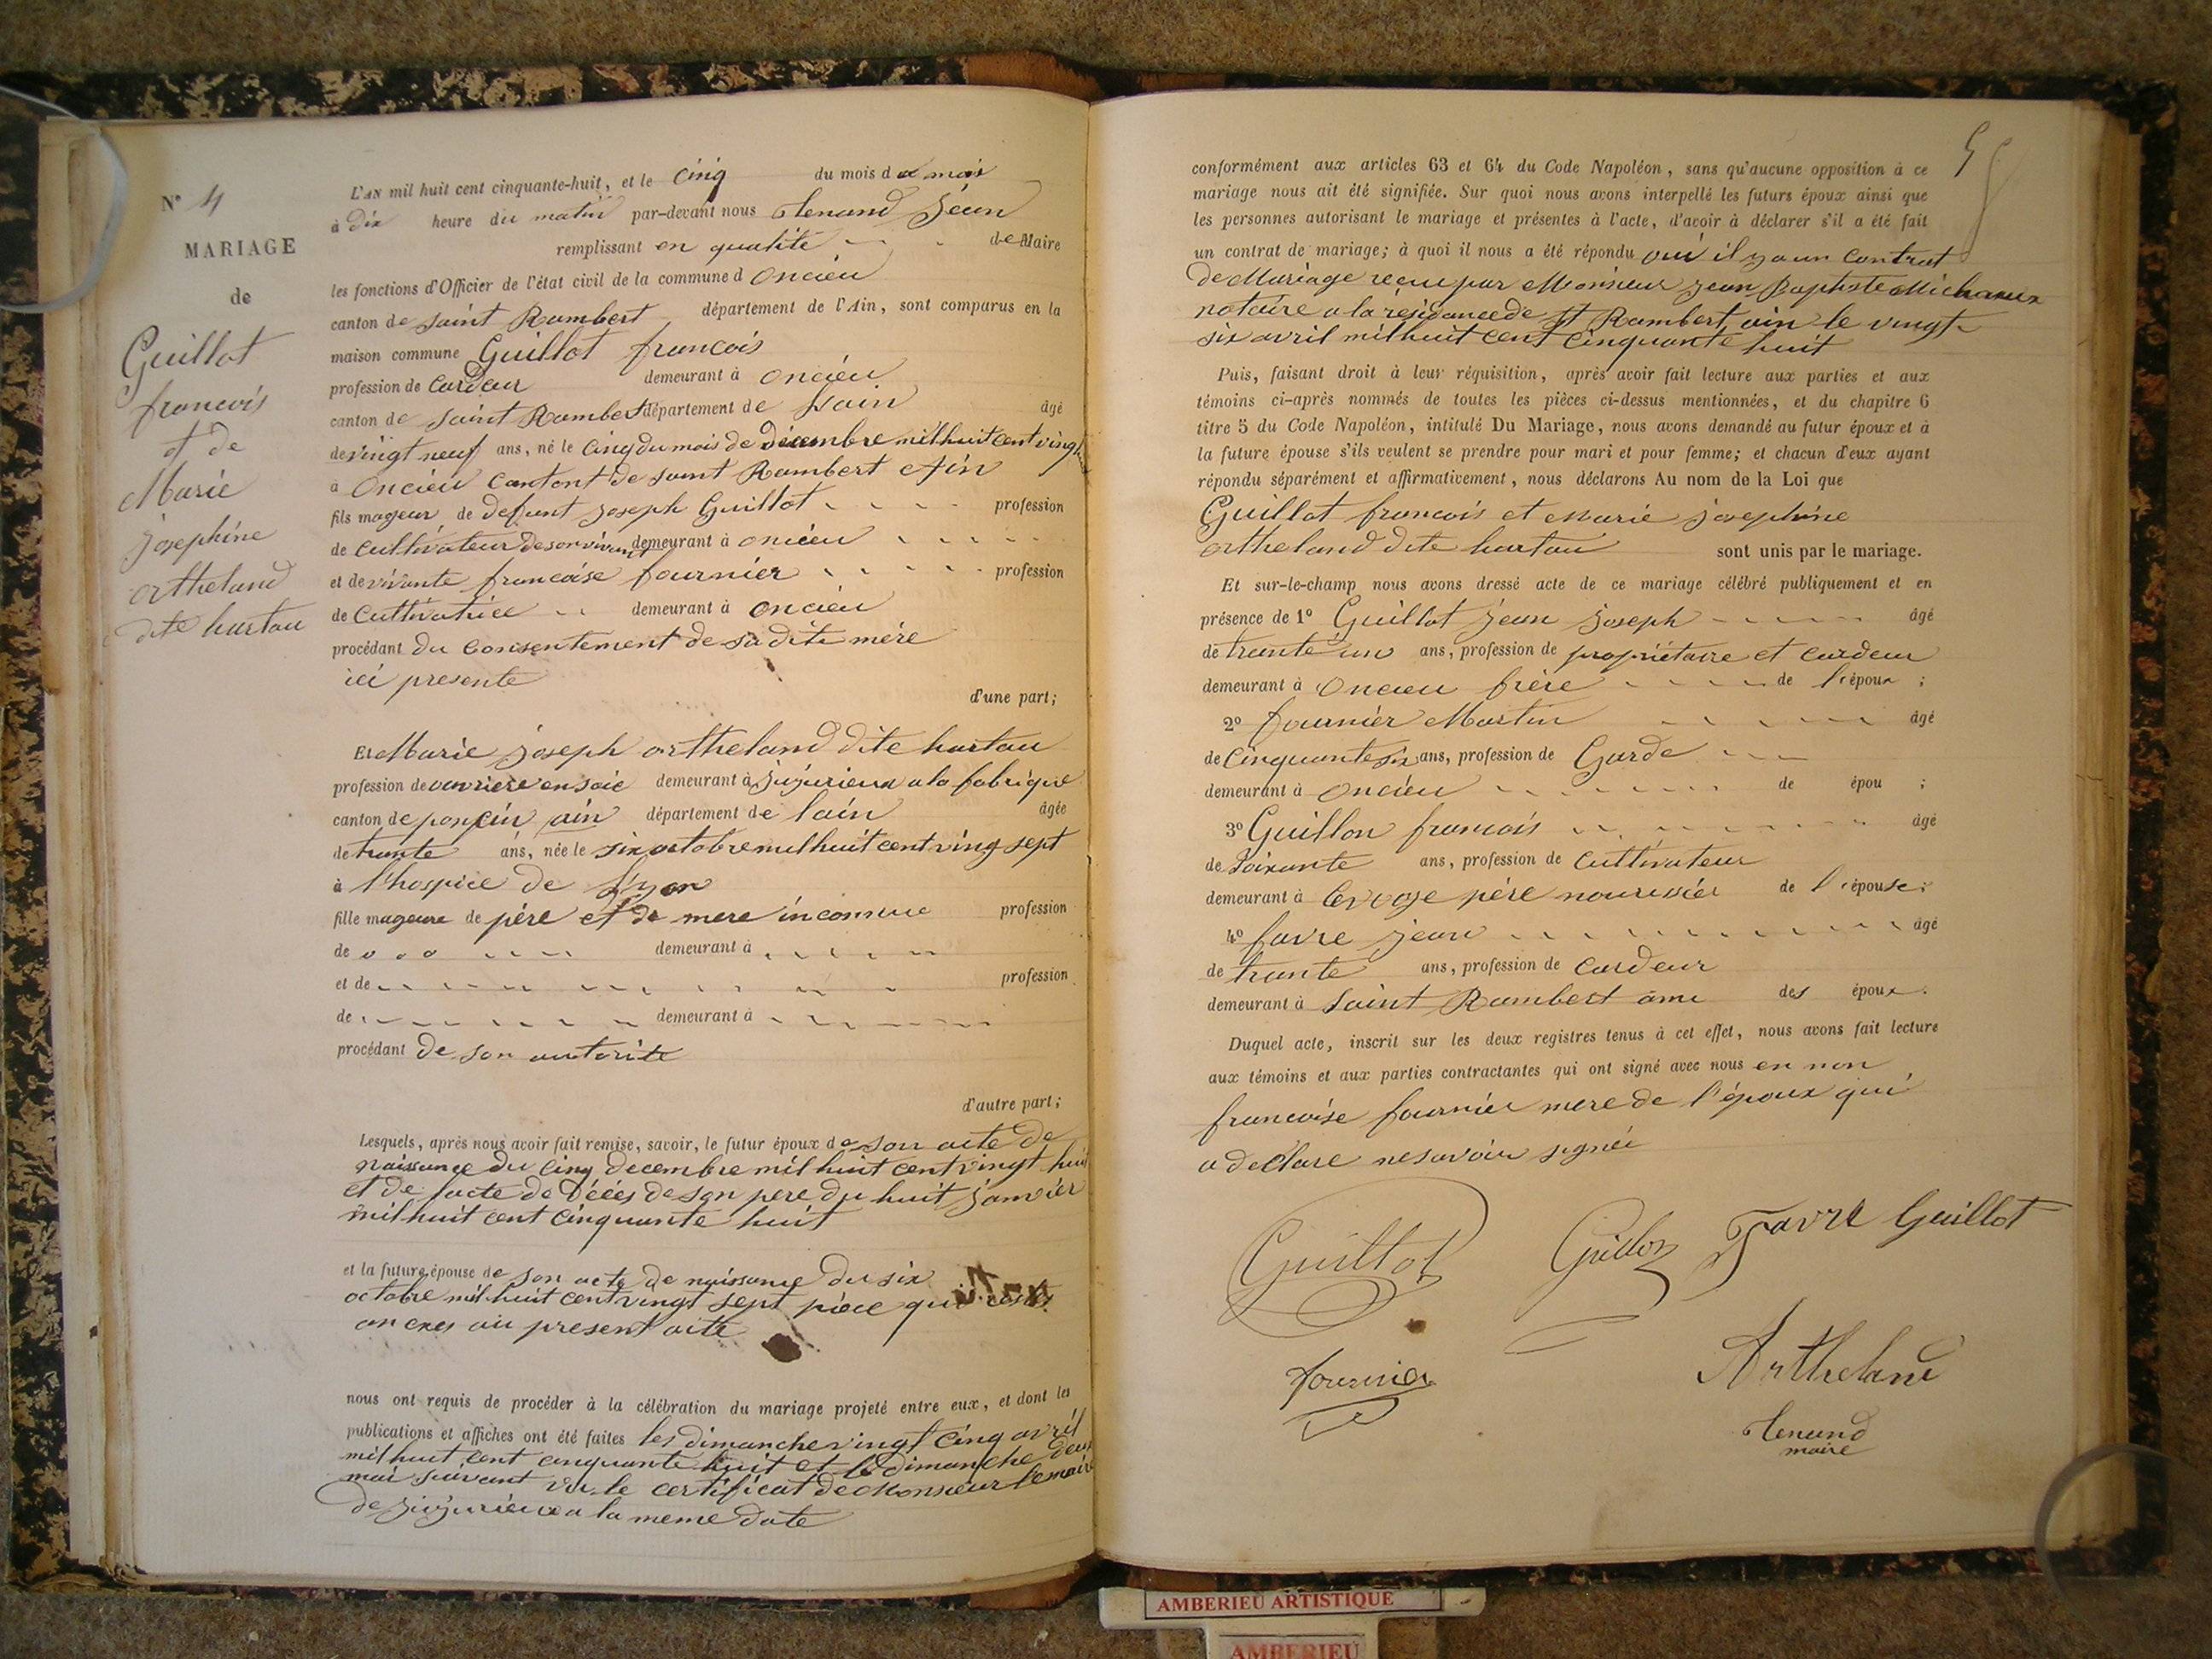 N° 4
MARIAGE
de
Guillot
francois
et de
Marie
josephine
ortheland
dite hartau
L'AN mil huit cent cinquante-huit, et le cinq du mois de mai
à dix heure du matin par-devant nous Tenand Jean
remplissant en qualité de Maire
les fonctions d'Officier de l'état civil de la commune d oncieu
canton de saint Rambert département de l'Ain, sont comparus en la
maison commune Guillot francois
profession de Cardeur demeurant à oncieu
canton de saint Rambert département de Lain âgé
de vingt neuf ans, né le cinq du mois de décembre mil huit cent vingt
à oncieu Cantont de saint Rambert Ain
fils mageur de defunt joseph Guillot profession
de Cultivateur de son vivant demeurant à oncieu
et de vivante francoise fournier profession
de Cultivatrice demeurant à oncieu
procédant du consentement de sa dite mére
ici presente
d'une part;
Et Marie joseph ortheland dite hartau
profession de ouvriere en soie demeurant à jujurieux a la fabrique
canton de poncin ain département de lain âgée
de trante ans, née le six octobre mil huit cent ving sept
à l'hospice de Lyon
fille mageure de pére et de mere inconnue profession
de demeurant à
et de profession
de demeurant à
procédant de son autorite
d'autre part;
Lesquels, après nous avoir fait remise, savoir, le futur époux de son acte de
naissance du cinq decembre mil huit cent vingt huit
et de lacte de décés de son pere du huit janvier
mil huit cent cinquante huit
et la future épouse de son acte de naissance du six
octobre mil huit cent vingt sept piece qui
an exes au present acte
nous ont requis de procéder à la célébration du mariage projeté entre eux, et dont les
publications et affiches ont été faites les dimanche vingt cinq avril
mil huit cent cinquante huit et le dimanche deux
mai suivant vu le certificat de Monsieur le maire
de jujurieux a la meme date
5
conformément aux articles 63 et 64 du Code Napoléon, sans qu'aucune opposition à ce
mariage nous ait été signifiée. Sur quoi nous avons interpellé les futurs époux ainsi que
les personnes autorisant le mariage et présentes à l'acte, d'avoir à déclarer s'il a été fait
un contrat de mariage; à quoi il nous a été répondu oui il y a un Contrat
de Mariage recue par Monsieur jean Baptiste Michaux
notaire a la residance de St Rambert ain le vingt
six avril mil huit cent cinquante huit
Puis, faisant droit à leur réquisition, après avoir fait lecture aux parties et aux
témoins ci-après nommés de toutes les pièces ci-dessus mentionnées, et du chapitre 6
titre 5 du Code Napoléon, intitulé Du Mariage, nous avons demandé au futur époux et à
la future épouse s'ils veulent se prendre pour mari et pour femme; et chacun d'eux ayant
répondu séparément et affirmativement, nous déclarons Au nom de la Loi que
Guillot francois et Marie josephine
ortheland dite hartau sont unis par le mariage.
Et sur-le-champ nous avons dressé acte de ce mariage célébré publiquement et en
présence de 1° Guillot jean joseph âgé
de trante un ans, profession de propriétaire et Cardeur
demeurant à oncieu frère de l'époux;
2° fournier Martin âgé
de Cinquante six ans, profession de Garde
demeurant à oncieu de épou ;
3° Guillon francois âgé
de Soixante ans, profession de Cultivateur
demeurant à père nourissier de l'épouse;
4° favre jean âgé
de trante ans, profession de Cardeur
demeurant à saint Rambert ami des époux.
Duquel acte, inscrit sur les deux registres tenus à cet effet, nous avons fait lecture
aux témoins et aux parties contractantes qui ont signé avec nous en non
francoise fournier mere de l'époux qui
a declare ne savoir signée
Guillot Guillon Favre Guillot
fournier Artheland
Tenand
maire
AMBERIEU ARTISTIQUE
AMBERIEU